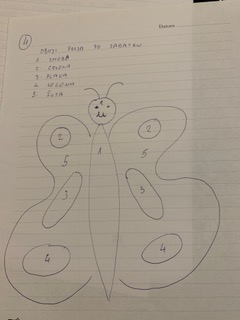 Datum:
4
OBOJI POLJA PO ZADATKU
1 SMEĐA
2 CRVENA
3 PLAVA
4 ZELENA
5 ŽUTA
1
2 2
5 1 5
3 3
4 4